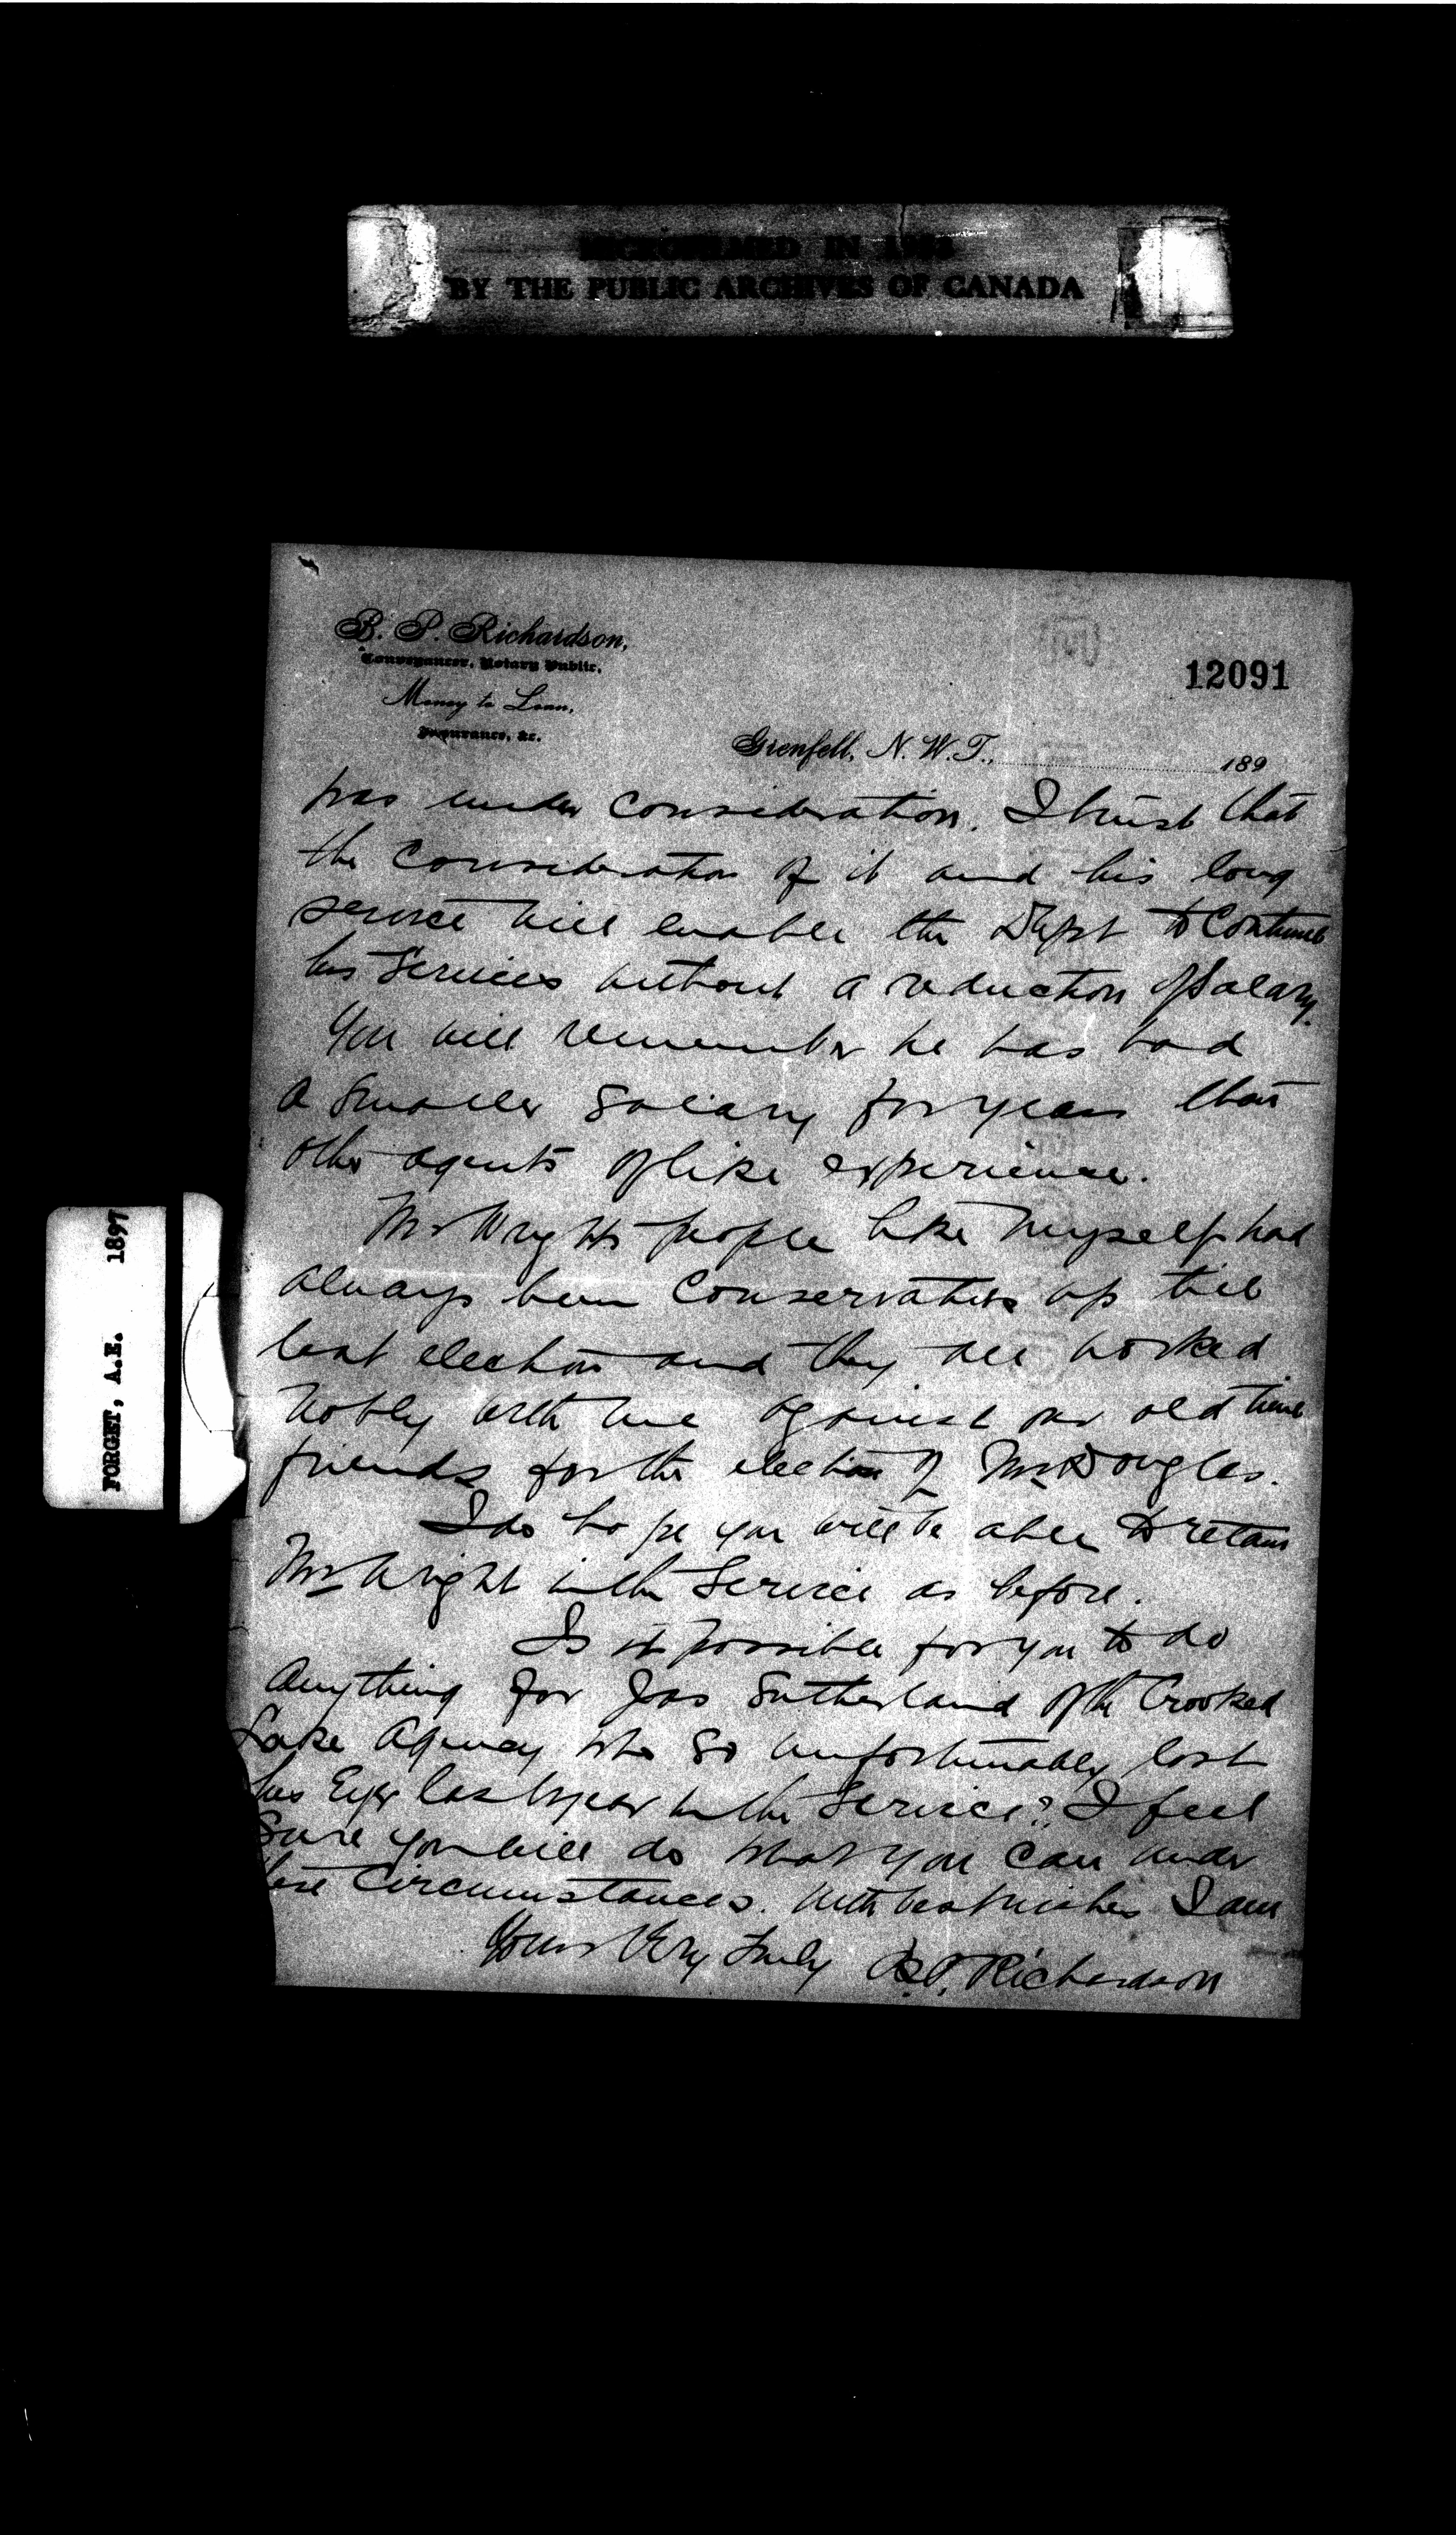 MICROFILMED IN
BY THE PUBLIC ARCHIVES OF CANADA
B. P. Richardson,
Conveyancer, Notary Public,
Money to Loan,
Insurance, &c.
12091
Grenfell, N.W.T., 189
was under consideration. I trust that
the consideration of it and his long
service will enable the Dept to Continue
his Services without a reduction of Salary.
You will remember he has had
a Smaller Salary for years than
other agents of like experience.
Mr Wrights people like myself had
always been Conservatives up till
last election and they all worked
nobly with me against our old time
friends for the election of Mr Douglas.
I do hope you will be able to retain
Mr Wright in the Service as before.
Is it possible for you to do
anything for Jas Sutherland of the Crooked
Lake Agency who so unfortunately lost
his Eye last year in the Service? I feel
Sure you will do what you can under
these Circumstances. With best wishes I am
Yours Very Truly B.P. Richardson
FORGET, A.E. 1897